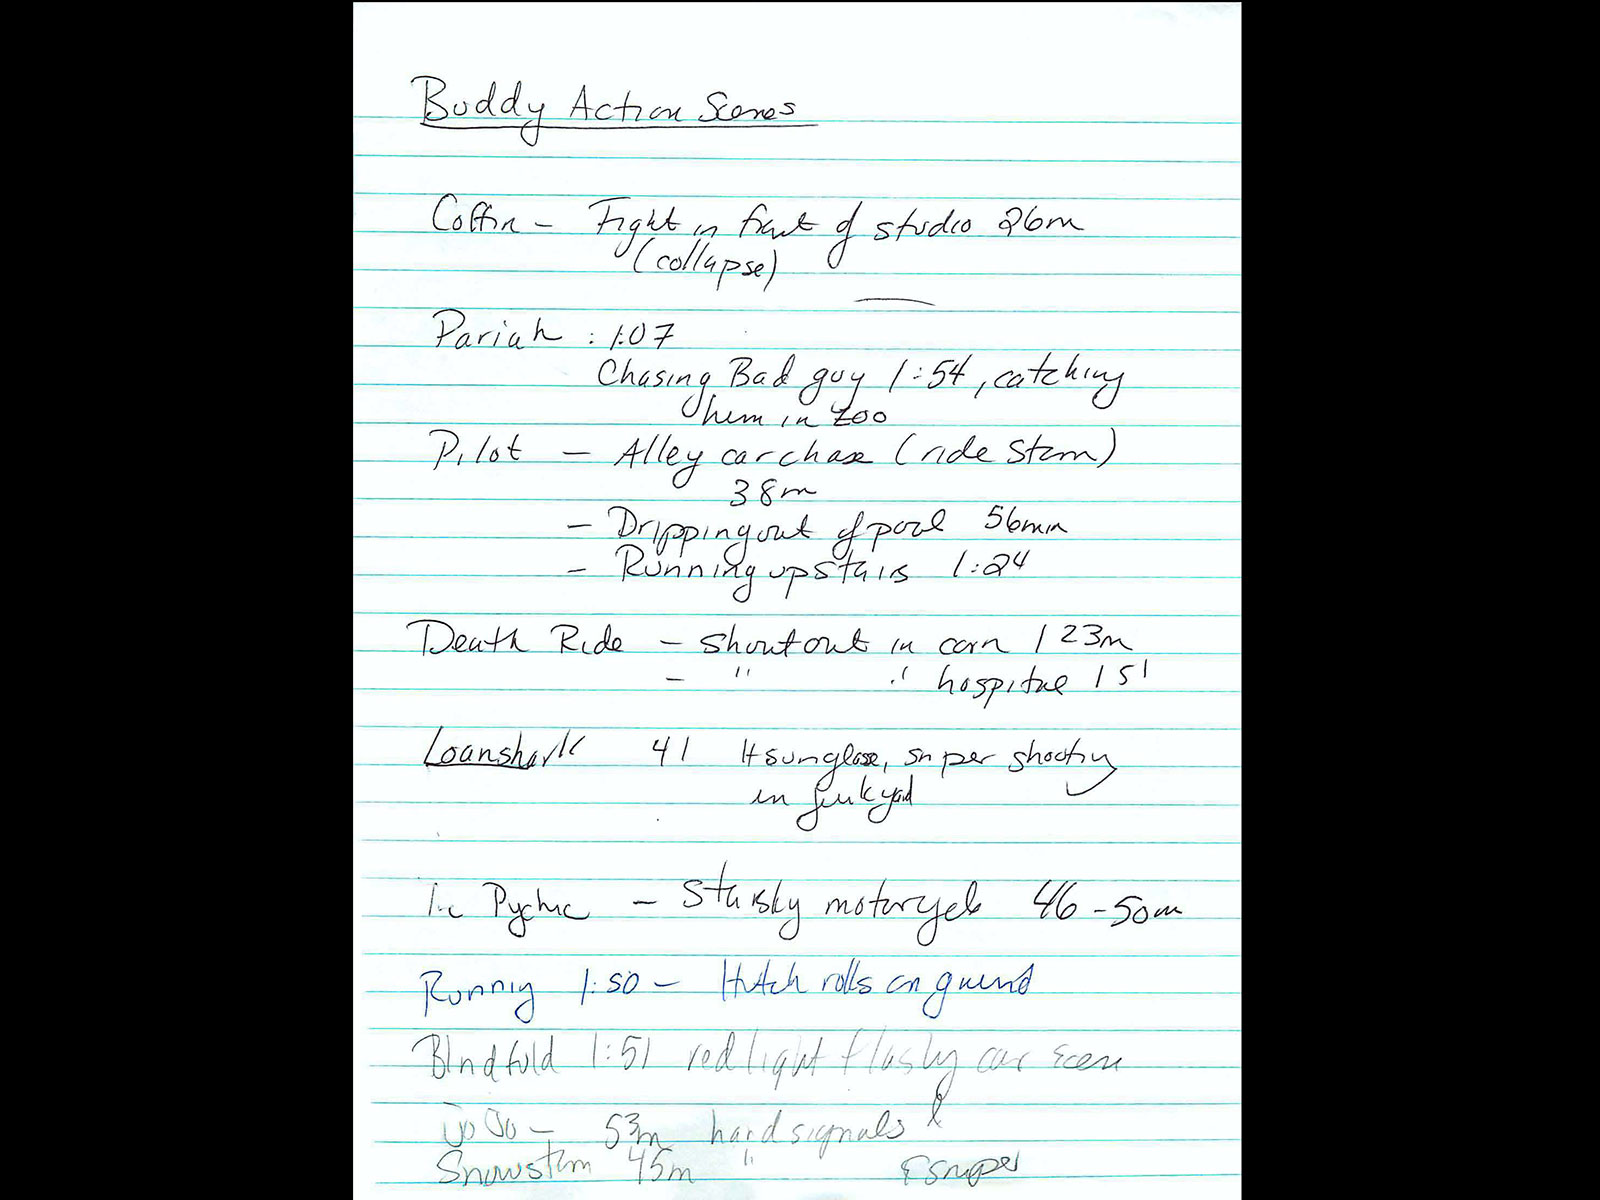 Buddy Action Scenes
Coffin - Fight in front of studio 26m
(collapse)
Pariah : 1:07
Chasing Bad guy 1:54, catching
him in zoo
Pilot - Alley car chase (ride Storm)
38m
- Dripping out of pool 56min
- Running upstairs 1:24
Death Ride - shootout in corn 1 23m
- " " hospital 1 51
Loanshark 41 H sunglasse, sniper shooting
in junkyard
Pychic - Starsky motorcycle 46 - 50m
Running 1:50 - Hutch rolls on ground
Blindfold 1:51 red light flashy car scene
JoJo - 53m hand signals
Snowstorm 45m " & sniper